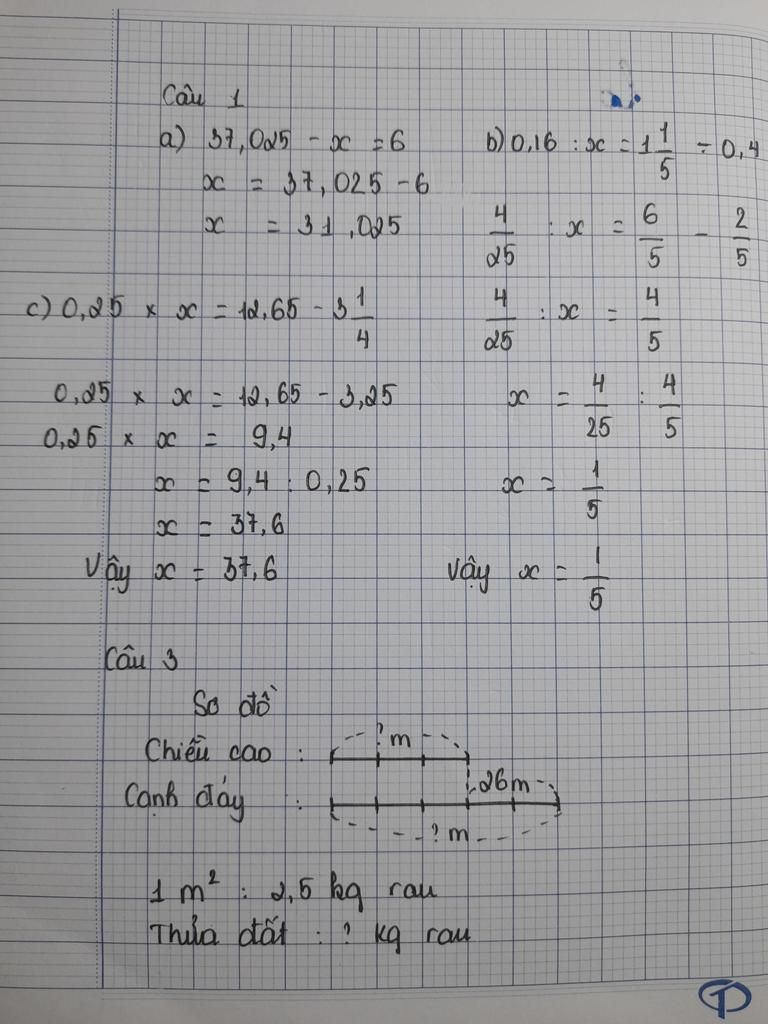 Câu 1
a) 37,025 - x = 6
x = 37,025 - 6
x = 31,025
b) 0,16 : x = 1 1/5 - 0,4
4/25 : x = 6/5 - 2/5
4/25 : x = 4/5
x = 4/25 : 4/5
x = 1/5
Vậy x = 1/5
c) 0,25 x x = 12,65 - 3 1/4
0,25 x x = 12,65 - 3,25
0,25 x x = 9,4
x = 9,4 : 0,25
x = 37,6
Vậy x = 37,6
Câu 3
Sơ đồ
? m
Chiều cao :
26m
Cạnh đáy :
? m
1 m² : 2,5 kg rau
Thửa đất : ? kg rau